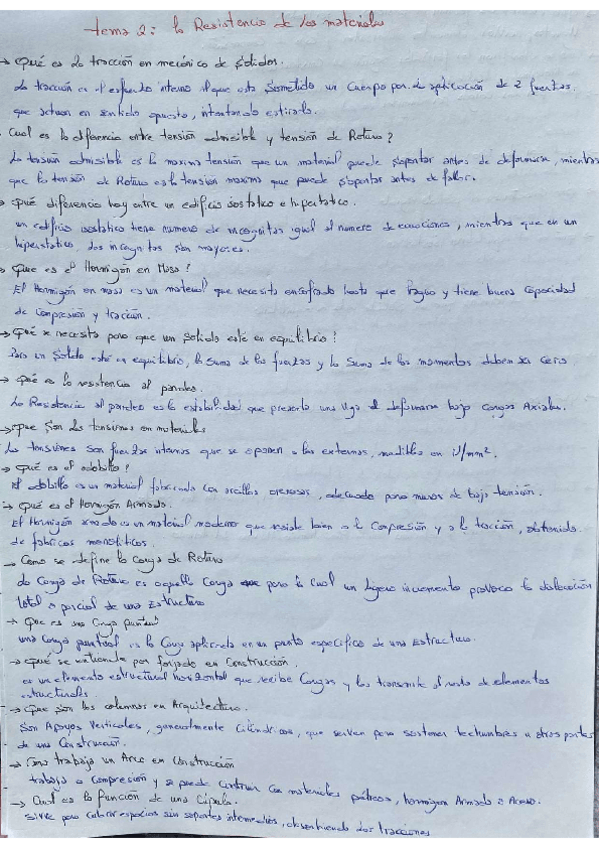 tema 2: la Resistencia de los materiales
→ Qué es la tracción en mecánica de sólidos.
La tracción es el esfuerzo interno al que está sometido un cuerpo por la aplicación de 2 fuerzas
que actuan en sentido opuesto, intentando estirarlo.
Cual es la diferencia entre tensión admisible y tensión de Rotura?
La tensión admisible es la maxima tensión que un material puede soportar antes de deformarse, mientras
que la tensión de Rotura es la tensión maxima que puede soportar antes de fallar.
→ Qué diferencia hay entre un edificio isostatico e hiperstatico.
un edificio isostatico tiene numero de incognitas igual al numero de ecuaciones, mientras que en un
hiperstatico, las incognitas son mayores.
→ Que es el Hormigón en Masa?
El Hormigón en masa es un material que necesita encofrado hasta que fragüe y tiene buena capacidad
de compresión y tracción.
→ Qué se necesita para que un solido esté en equilibrio?
Para un solido esté en equilibrio, la suma de las fuerzas y la suma de los momentos deben ser cero
→ Qué es la resistencia al pandeo.
La Resistencia al pandeo es la estabilidad que presenta una viga al deformarse bajo cargas Axiales.
→ que son las tensiones en materiales
Las tensiones son fuerzas internas que se oponen a las externas, medibles en N/mm².
→ Qué es el adobillo?
El adobillo es un material fabricado con arcillas arenosas, adecuado para muros de baja tensión.
→ Qué es el Hormigón Armado.
El Hormigón armado es un material moderno que resiste bien a la compresión y a la tracción, obtenido
de fabricas monolíticas.
→ Como se define la carga de Rotura
La Carga de Rotura es aquella carga para la cual un ligero incremento provoca la dislocación
total o parcial de una Estructura
→ Que es una Carga puntual
una carga puntual es la carga aplicada en un punto especifico de una estructura.
→ Qué se entiende por forjado en Construcción.
es un elemento estructural horizontal que recibe cargas y las transmite al resto de elementos
estructurales.
→ Que son las columnas en Arquitectura.
Son Apoyos verticales, generalmente cilíndricos, que sirven para sostener techumbres u otras partes
de una construcción.
→ Como trabaja un Arco en Construcción
trabaja a compresión y se puede construir con materiales pétreos, hormigon Armado o Acero.
→ Cual es la función de una Cúpula.
Sirve para cubrir espacios sin soportes intermedios, absorbiendo las tracciones